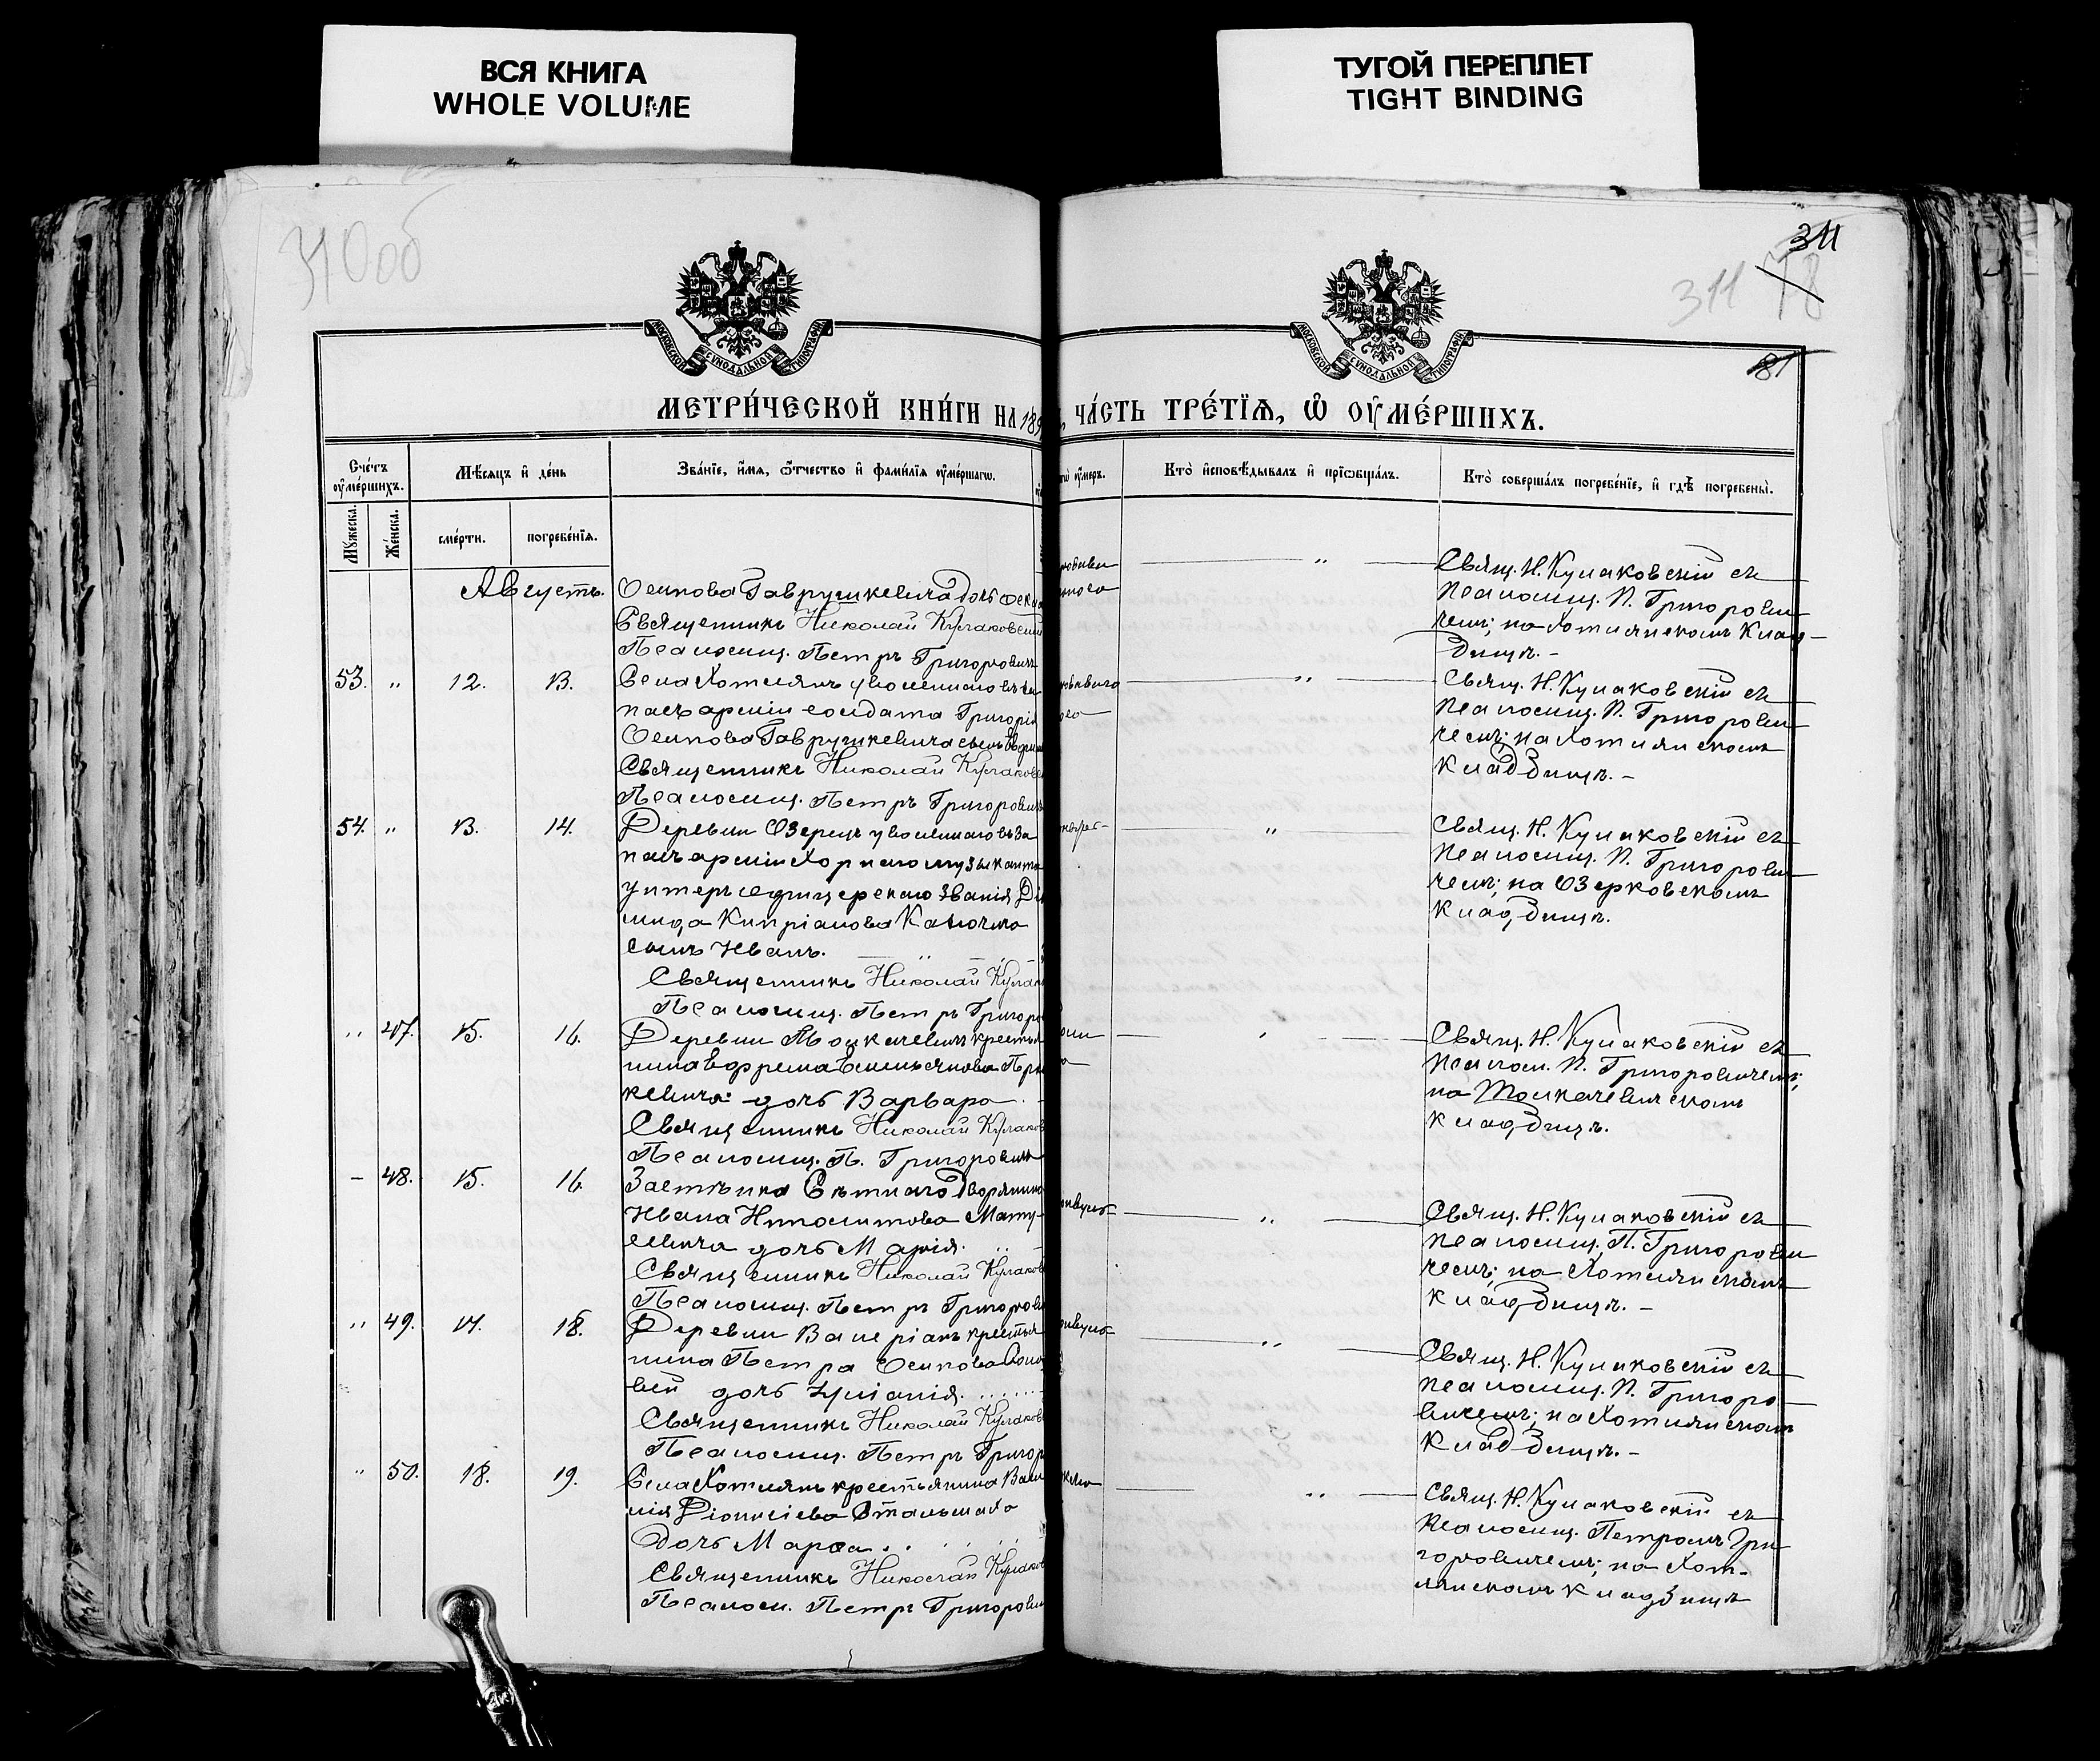 ВСЯ КНИГА
WHOLE VOLUME
ТУГОЙ ПЕРЕПЛЕТ
TIGHT BINDING
310об
311
311 78
81
МОСКОВСКОЙ СѴНОДАЛЬНОЙ ТИПОГРАФІИ
МОСКОВСКОЙ СѴНОДАЛЬНОЙ ТИПОГРАФІИ
МЕТРИ́ЧЕСКОЙ КНИ́ГИ НА 189
ЧА́СТЬ ТРЕ́ТЇѦ, Ѡ҆ ОУ҆МЕ́РШИХЪ.
Сче́тъ оу҆ме́ршихъ.
Мѣ́сяцъ и҆ де́нь
Зва́нїе, и҆́мя, ѻ҆́тчество и҆ фами́лїя оу҆ме́ршагѡ.
оу҆́меръ.
Кто̀ и҆сповѣ́дывалъ и҆ прїѡбща́лъ.
Кто̀ соверша́лъ погребе́нїе, и҆ гдѣ̀ погребены̀.
Му́жеска.
Же́нска.
сме́рти.
погребе́нїя.
Августъ.
Осипова Гаврушкевича дочь
Священникъ Николай Кулаковскій
Псаломщ. Петръ Григоровичъ
Свящ. Н. Кулаковскій съ
псаломщ. П. Григорови
чемъ; на Хотлянскомъ клад-
бищѣ. -
53. " 12. 13.
Села Хотлянъ уволеннаго въ за
пасъ арміи солдата Григорія
Осипова Гаврушкевича сынъ
Священникъ Николай Кулаковс
Псаломщ. Петръ Григоровичъ
Свящ. Н. Кулаковскій съ
псаломщ. П. Григорови
чемъ; на Хотлянскомъ
кладбищѣ. -
54. " 13. 14.
Деревни Озерецъ уволеннаго въ за
пасъ арміи хорнаго музыканта
унтеръ офицерскаго званія
мида Кипріанова
сынъ Иванъ.
Священникъ Николай Кулак
Псаломщ. Петръ Григоро
Свящ. Н. Кулаковскій съ
псаломщ. П. Григорови
чемъ; на Озерковскомъ
кладбищѣ.
" 47. 15. 16.
Деревни Толкачевичъ крестья
нина Ефрема Емельянова
кевича дочь Варвара.
Священникъ Николай Кулаков
Псаломщ. П. Григоровичъ
Свящ. Н. Кулаковскій съ
псалом. П. Григоровичемъ;
на Толкачевичскомъ
кладбищѣ.
- 48. 15. 16.
Застѣнка дворянина
Ивана Ипполитова Мату-
севича дочь Марія.
Священникъ Николай Кулаков
Псаломщ. Петръ Григорови
Свящ. Н. Кулаковскій съ
псаломщ. П. Григорови
чемъ; на Хотлянскомъ
кладбищѣ. -
" 49. 17. 18.
Деревни Валеріанъ крестья
нина Петра Осипова
вей дочь Іуліанія.
Священникъ Николай Кулаков
Псаломщ. Петръ Григор
Свящ. Н. Кулаковскій съ
псаломщ. П. Григоро-
вичемъ; на Хотлянскомъ
кладбищѣ. -
" 50. 18. 19.
Села Хотлянъ крестьянина Васи
лія Діонисіева
дочь Марѳа.
Священникъ Николай Кулаков
Псалом. Петръ Григорови
Свящ. Н. Кулаковскій съ
псаломщ. Петромъ Гри
горовичемъ; на Хот-
лянскомъ кладбищѣ